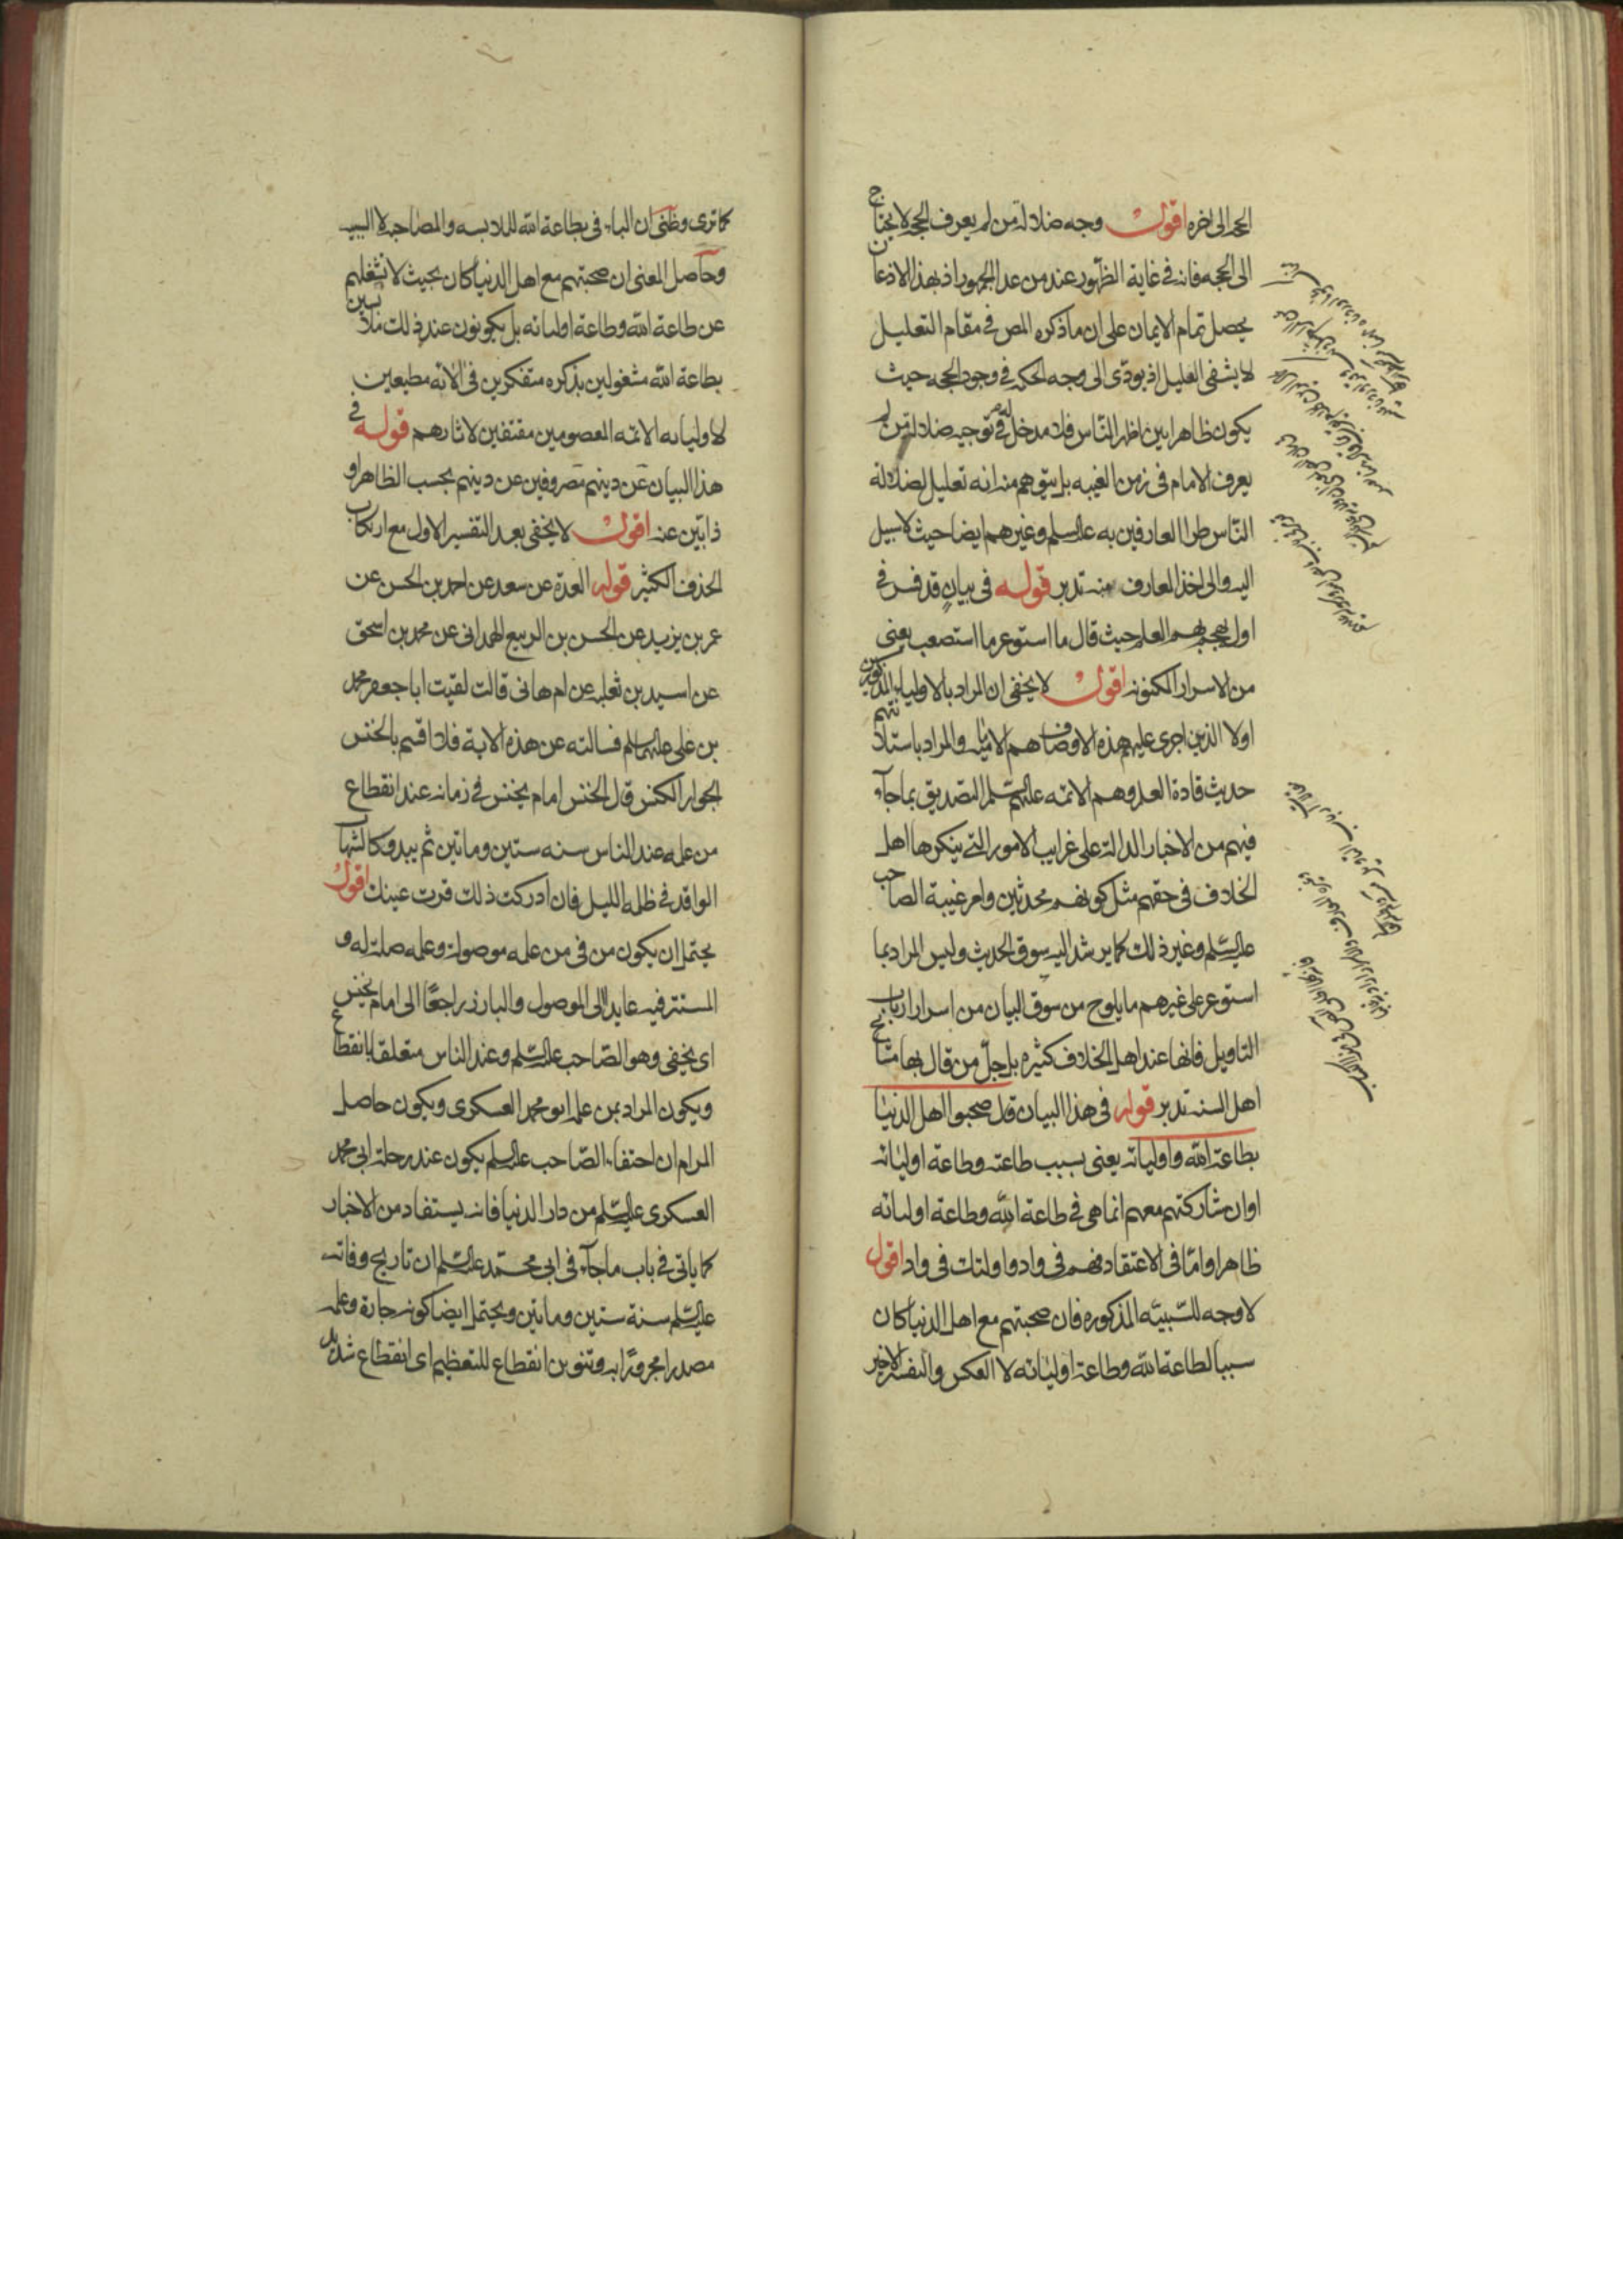 الحجه الى اخره اقول وجه ضلالة من لم يعرف الحجه لا يحتاج
الى الحجه فانه فى غاية الظهور عند من عدا الجمهور اذ بهذا الاذعان
يحصل تمام الايمان على ان ما ذكره المص فى مقام التعليل
لا يشفى العليل اذ يودى الى وجه الحكمه فى وجود الحجه حيث
يكون ظاهرا بين اظهر الناس فلا مدخل له فى توجيه ضلالة من لم
يعرف الامام فى زمن الغيبه بل يتوهم منه انه تعليل لضلالة
الناس طرا العارفين به عليه السلم وغيرهم ايضا حيث لا سبيل
اليه والى اخذ المعارف منه تدبر قوله فى بيان قد فسر فى
اول هجم بهم العلم حيث قال ما استوعر ما استصعب يعنى
من الاسرار المكنونه اقول لا يخفى ان المراد بالاولياء المذكورين
اولا الذين اجرى عليهم هذه الاوصاف هم الامثال والمراد باستلانتهم
حديث قادة العلم وهم الائمه عليهم السلم التصديق بما جاء
فيهم من الاخبار الدالة على غرايب الامور التى ينكرها اهل
الخلاف فى حقهم مثل كونهم محدثين وامر غيبة الصاحب
عليه السلم وغير ذلك كما يرشد اليه سوق الحديث وليس المراد بما
استوعر على غيرهم ما يلوح من سوق البيان من اسرار ارباب
التاويل فانها عند اهل الخلاف كثيره بل جل من قال بها مشايخ
اهل السنه تدبر قوله فى هذا البيان قال صحبوا اهل الدنيا
بطاعة الله واوليائه يعنى بسبب طاعته وطاعة اوليائه
او ان مشاركتهم معهم انما هى فى طاعة الله وطاعة اوليائه
ظاهرا واما فى الاعتقاد فهم فى واد واولئك فى واد اقول
لا وجه للسببيه المذكوره فان صحبتهم مع اهل الدنيا كان
سببا لطاعة الله وطاعة اوليائه لا العكس والتفسير الاخير
كما ترى وظنى ان الباء فى بطاعة الله للملابسه والمصاحبه لا السببيه
وحاصل المعنى ان صحبتهم مع اهل الدنيا كان بحيث لا تشغلهم
عن طاعة الله وطاعة اوليائه بل يكونون عند ذلك متلبسين
بطاعة الله مشغولين بذكره متفكرين فى الائه مطيعين
لاوليائه الائمه المعصومين مقتفين لاثارهم قوله فى
هذا البيان عن دينهم مصروفين عن دينهم بحسب الظاهر او
ذابين عنه اقول لا يخفى بعد التفسير الاول مع ارتكاب
الحذف الكثير قوله العدة عن سعد عن احمد بن الحسن عن
عمر بن يزيد عن الحسن بن الربيع الهمدانى عن محمد بن اسحق
عن اسيد بن ثعلبه عن ام هانى قالت لقيت ابا جعفر محمد
بن على عليهما السلم فسالته عن هذه الاية فلا اقسم بالخنس
الجوار الكنس قال الخنس امام يخنس فى زمانه عند انقطاع
من علمه عند الناس سنه ستين وماتين ثم يبدو كالشهاب
الواقد فى ظلمه الليل فان ادركت ذلك قرت عينك اقول
يحتمل ان يكون من فى من علمه موصولة وعلمه صلته له و
المستتر فيه عايدا الى الموصول والبارز راجعًا الى امام يخنس
اى يخفى وهو الصاحب عليه السلم وعند الناس متعلقا بانقطاع
ويكون المراد بمن علمه ابو محمد العسكرى ويكون حاصل
المرام ان اختفاء الصاحب عليه السلم يكون عند رحلة ابى محمد
العسكرى عليه السلم من دار الدنيا فانه يستفاد من الاخبار
كما ياتى فى باب ما جاء فى ابى محمد عليه السلم ان تاريخ وفاته
عليه السلم سنة ستين وماتين ويحتمل ايضا كونه جارة وعلمه
مصدرا مجرورًا به وتنوين انقطاع للتعظيم اى انقطاع شديد